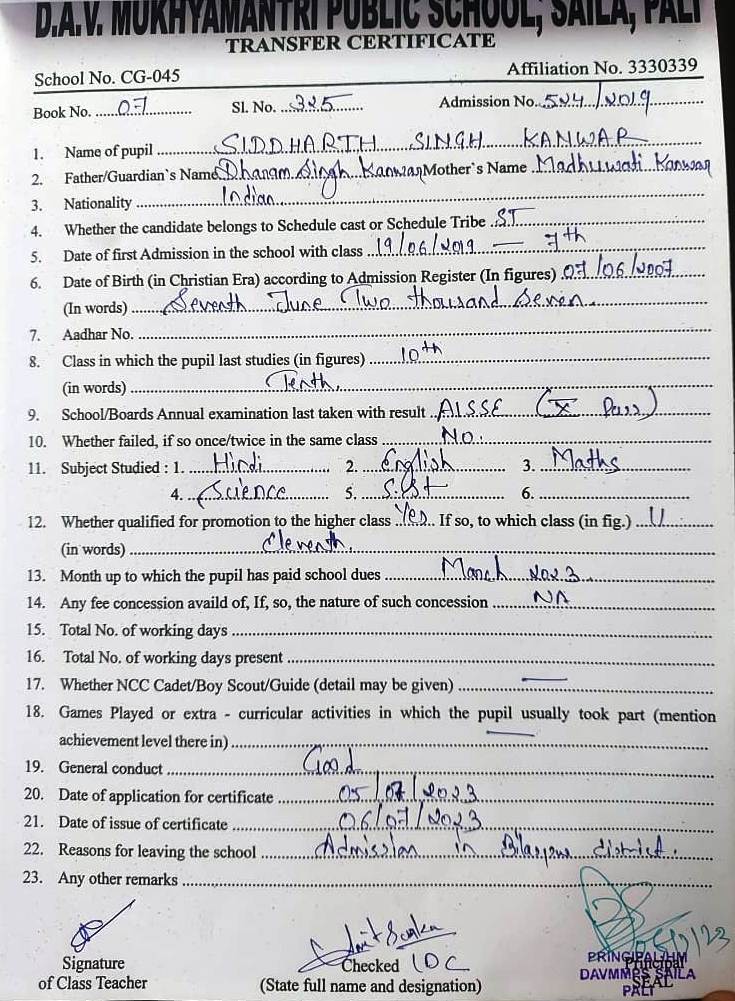 D.A.V. MUKHYAMANTRI PUBLIC SCHOOL, SAILA, PALI
TRANSFER CERTIFICATE
School No. CG-045 Affiliation No. 3330339
Book No. 07 Sl. No. 325 Admission No. 524/2019
1. Name of pupil SIDDHARTH SINGH KANWAR
2. Father/Guardian`s Name Dhanam Singh Kanwar Mother`s Name Madhuwati Kanwar
3. Nationality Indian
4. Whether the candidate belongs to Schedule cast or Schedule Tribe ST
5. Date of first Admission in the school with class 19/06/2019 — 7th
6. Date of Birth (in Christian Era) according to Admission Register (In figures) 07/06/2007
(In words) Seventh June Two thousand Seven.
7. Aadhar No.
8. Class in which the pupil last studies (in figures) 10th
(in words) Tenth.
9. School/Boards Annual examination last taken with result AISSE (X Pass)
10. Whether failed, if so once/twice in the same class No.
11. Subject Studied : 1. Hindi 2. English 3. Maths
4. Science 5. S.St 6.
12. Whether qualified for promotion to the higher class Yes If so, to which class (in fig.) 11
(in words) Eleventh.
13. Month up to which the pupil has paid school dues March 2023
14. Any fee concession availd of, If, so, the nature of such concession NA
15. Total No. of working days
16. Total No. of working days present
17. Whether NCC Cadet/Boy Scout/Guide (detail may be given) —
18. Games Played or extra - curricular activities in which the pupil usually took part (mention
achievement level there in) —
19. General conduct Good
20. Date of application for certificate 05/07/2023
21. Date of issue of certificate 06/07/2023
22. Reasons for leaving the school Admission in Bilaspur district.
23. Any other remarks
Signature
of Class Teacher
Checked LDC
(State full name and designation)
PRINCIPAL/HM
Principal
DAVMMPS SAILA
SEAL
PALI